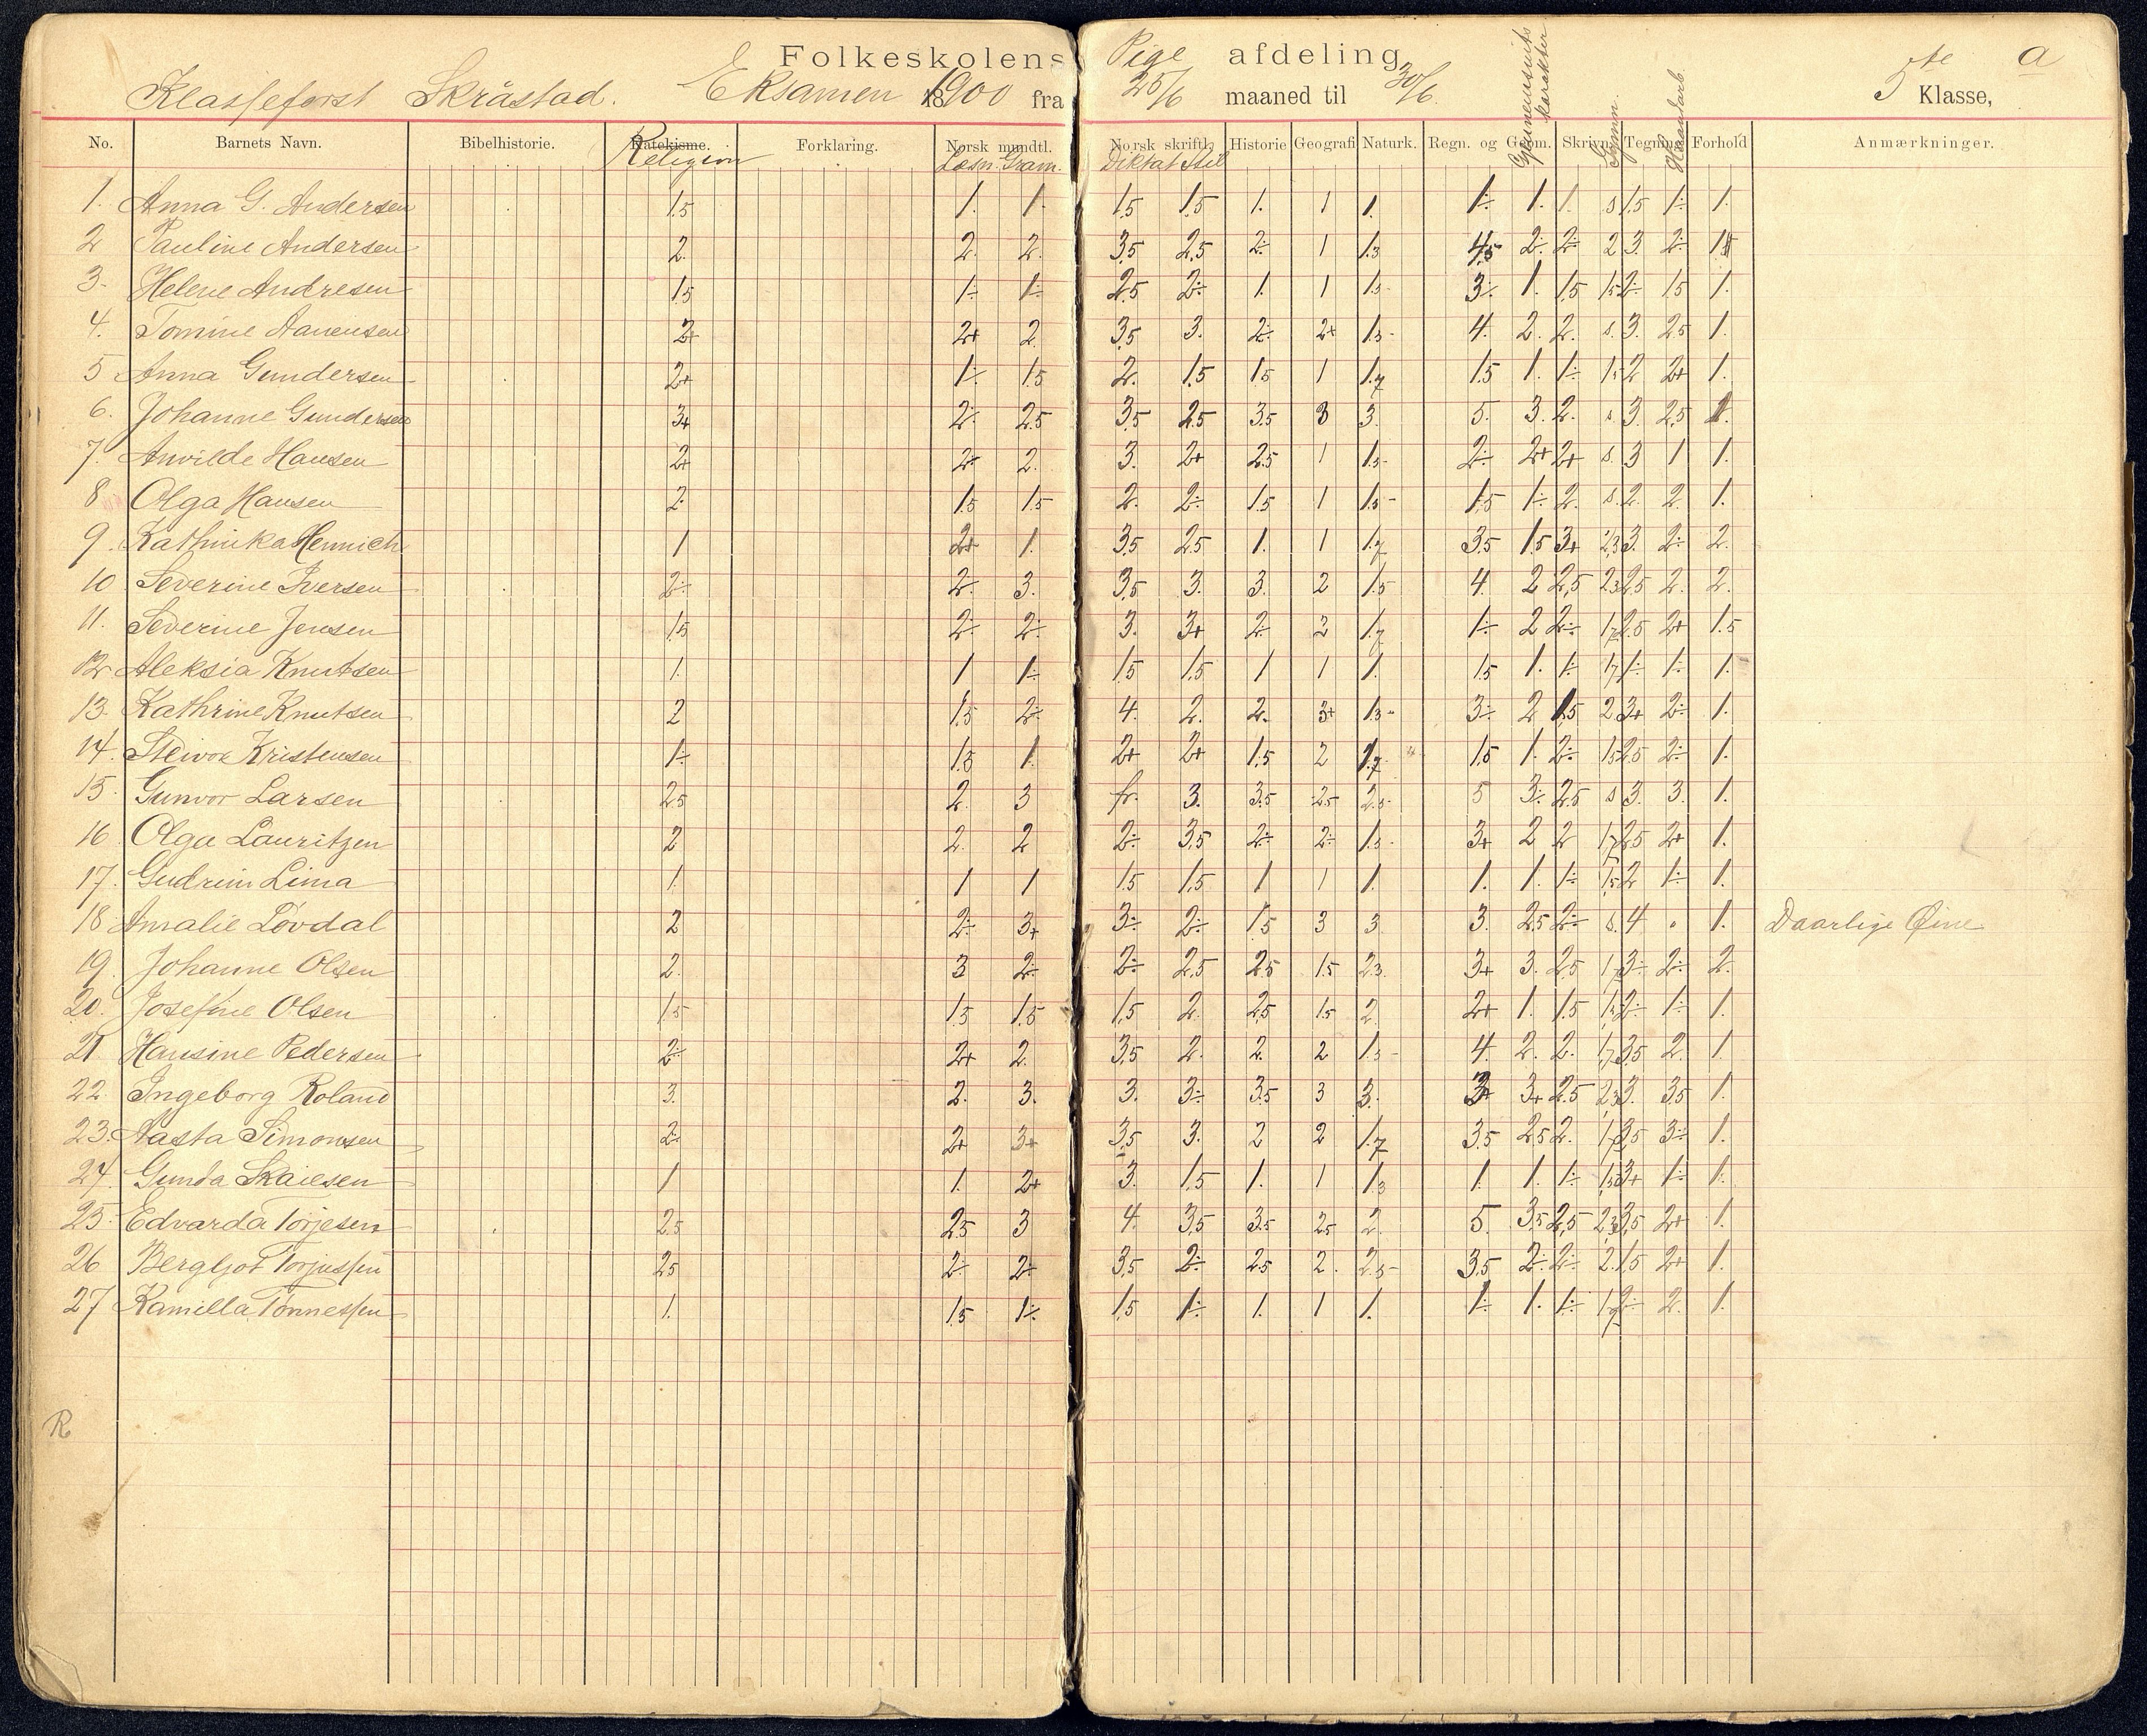 Folkeskolens Pige afdeling 5te a
Klasseforst Skråstad. Eksamen 1900 fra 25/6 maaned til 30/6. Klasse,
No. Barnets Navn. Bibelhistorie. Katekisme. Forklaring. Norsk mundtl. Norsk skriftl. Historie Geografi Naturk. Regn. og Geom. Skrivn. Gymn. Tegning Haandarb. Forhold Anmærkninger.
Religion Læsn. Gram. Diktat Stil
1. Anna G. Andersen 1.5 1. 1. 1.5 1.5 1. 1 1. 1÷ 1. 1. s 1.5 1÷ 1.
2 Pauline Andersen 2. 2. 2. 3.5 2.5 2÷ 1 1.3 4.5 2÷ 2÷ 2 3 2÷
3. Helene Andresen 1.5 1÷ 1÷ 2.5 2÷ 1. 1 1.5- 3÷ 1. 1.5 1.5 2÷ 1.5 1.
4. Tomine Aanensen 2+ 2+ 2 3.5 3. 2÷ 2+ 1.3- 4. 2. 2. s. 3. 2.5 1.
5 Anna Gundersen 2+ 1÷ 1.5 2. 1.5 1.5 1 1.7 1.5 1. 1÷ 1.5 2 2+ 1.
6. Johanne Gundersen 3+ 2÷ 2.5 3.5 2.5 3.5 3 3. 5. 3. 2. s. 3. 2.5 1.
7. Anvilde Hansen 2+ 2÷ 2. 3. 2+ 2.5 1 1.3- 2÷ 2+ 2+ s. 3 1 1.
8 Olga Hansen 2. 1.5 1.5 2. 2÷ 1.5 1 1.5- 1.5 1÷ 2. s. 2. 2. 1.
9. Kathinka Hennich 1 2+ 1. 3.5 2.5 1. 1 1.7 3.5 1.5 3+ 2.3 3. 2÷ 2.
10 Severine Iversen 2÷ 2÷ 3. 3.5 3. 3. 2 1.5 4. 2 2.5 2.3 2.5 2. 2.
11. Severine Jensen 1.5 2÷ 2÷ 3. 3+ 2÷ 2 1.7 1÷ 2 2÷ 1.7 2.5 2+ 1.5
12 Aleksia Knutsen 1. 1 1÷ 1.5 1.5 1 1 1. 1.5 1. 1÷ 1.7 1÷ 1÷ 1.
13. Kathrine Knutsen 2 1.5 2÷ 4. 2. 2. 3+ 1.3- 3÷ 2 1.5 2 3+ 2÷ 1.
14. Kristensen 1÷ 1.5 1. 2+ 2+ 1.5 2 1.7 1.5 1. 2÷ 1.5 2.5 2÷ 1.
15. Gunvor Larsen 2.5 2. 3 fr. 3. 3.5 2.5 2.5- 5 3÷ 2.5 s 3. 3. 1.
16 Olga Lauritzen 2 2. 2 2÷ 3.5 2÷ 2÷ 1.5- 3+ 2 2 1.7 2.5 2+ 1.
17. Gudrun Lima 1. 1 1 1.5 1.5 1 1 1. 1. 1. 1÷ 1.5 2 1÷ 1.
18 Amalie Løvdal 2 2÷ 3+ 3÷ 2÷ 1.5 3 3 3. 2.5 2÷ s. 4 „ 1. Daarlige Øine
19. Johanne Olsen 2. 3 2÷ 2÷ 2.5 2.5 1.5 2.3. 3+ 3. 2.5 1.7 3÷ 2÷ 2.
20. Josefine Olsen 1.5 1.5 1.5 1.5 2. 2.5 1.5 2 2+ 1. 1.5 1.5 2÷ 1÷ 1.
21. Hansine Pedersen 2÷ 2+ 2. 3.5 2. 2. 2 1.3- 4. 2. 2. 1.7 3.5 2. 1.
22. Ingeborg Roland 3. 2. 3. 3. 3÷ 3.5 3 3. 3+ 3+ 2.5 2.3 3. 3.5 1.
23. Aasta Simonsen 2. 2+ 3+ 3.5 3. 2 2 1.7 3.5 2.5 2. 1.7 3.5 3÷ 1.
24. Gunda Skaiesen 1 1. 2+ 3. 1.5 1. 1 1.3 1. 1. 1÷ 1.5 3+ 1÷ 1.
25. Edvarda Torjesen 2.5 2.5 3 4. 3.5 3.5 2.5 2. 5. 3.5 2.5 2.3 3.5 2+ 1.
26 Bergljot Torjussen 2.5 2÷ 2÷ 3.5 2÷ 2.5 2. 2.5- 3.5 2÷ 2÷ 2. 1.5 2+ 1.
27 Kamilla Tønnessen 1. 1.5 1÷ 1.5 1÷ 1. 1 1. 1÷ 1. 1÷ 1.7 2÷ 2. 1.
R